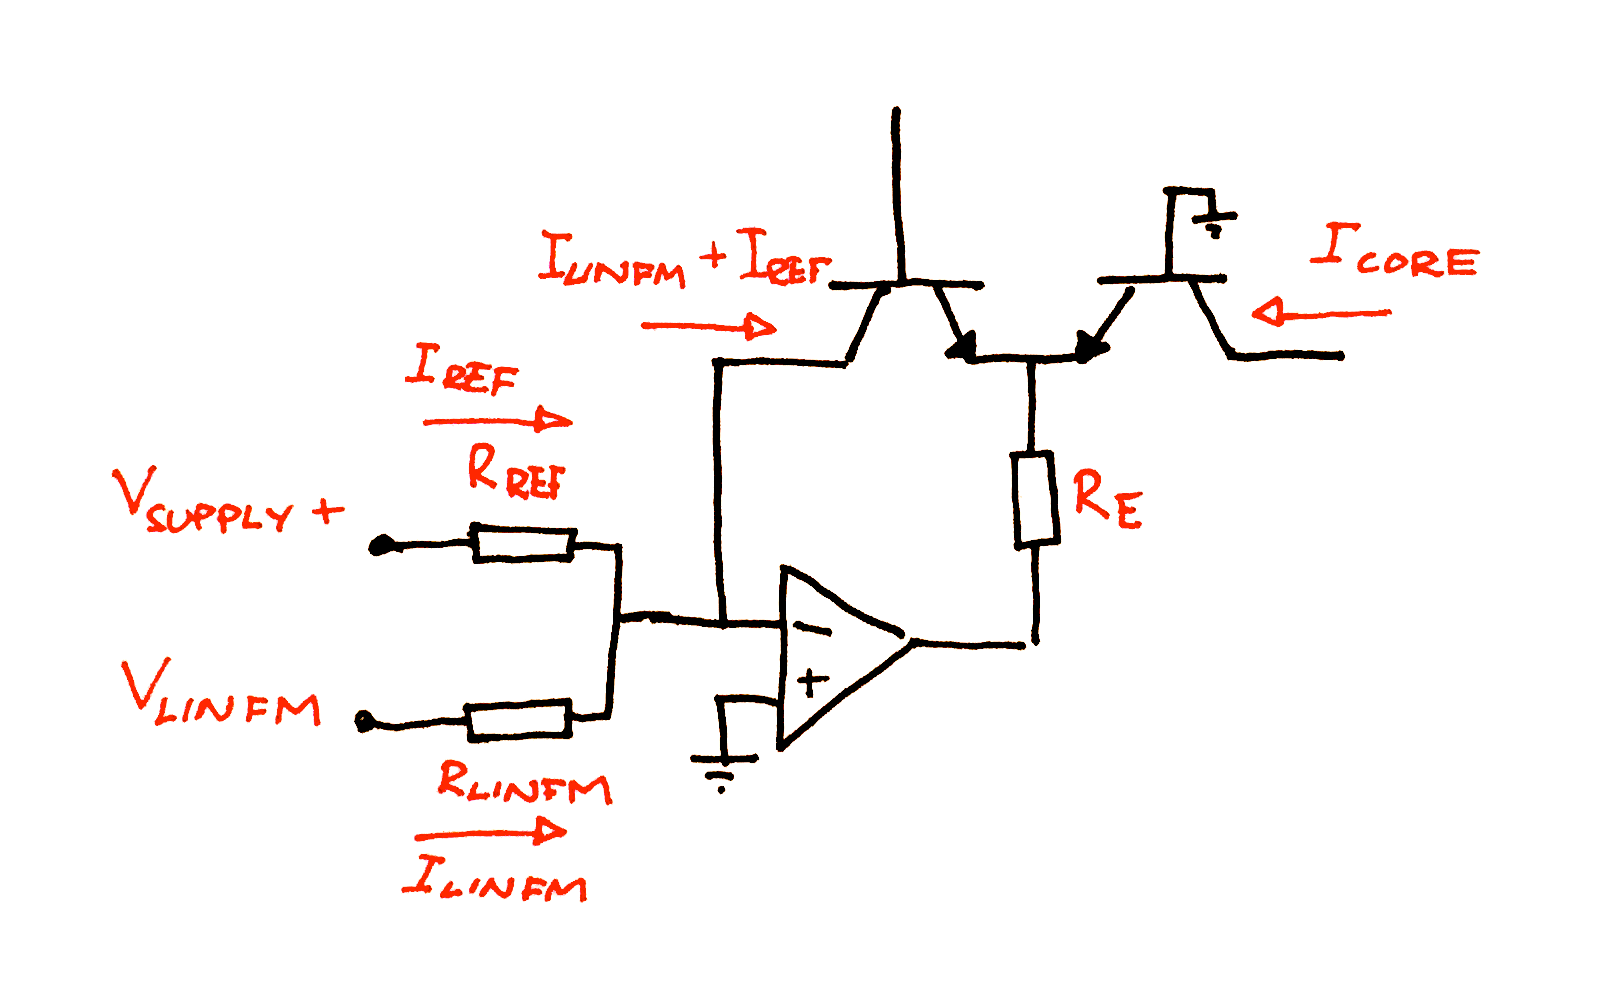 I LINFM + I REF
I CORE
I REF
R REF
V SUPPLY +
R E
−
+
V LINFM
R LINFM
I LINFM